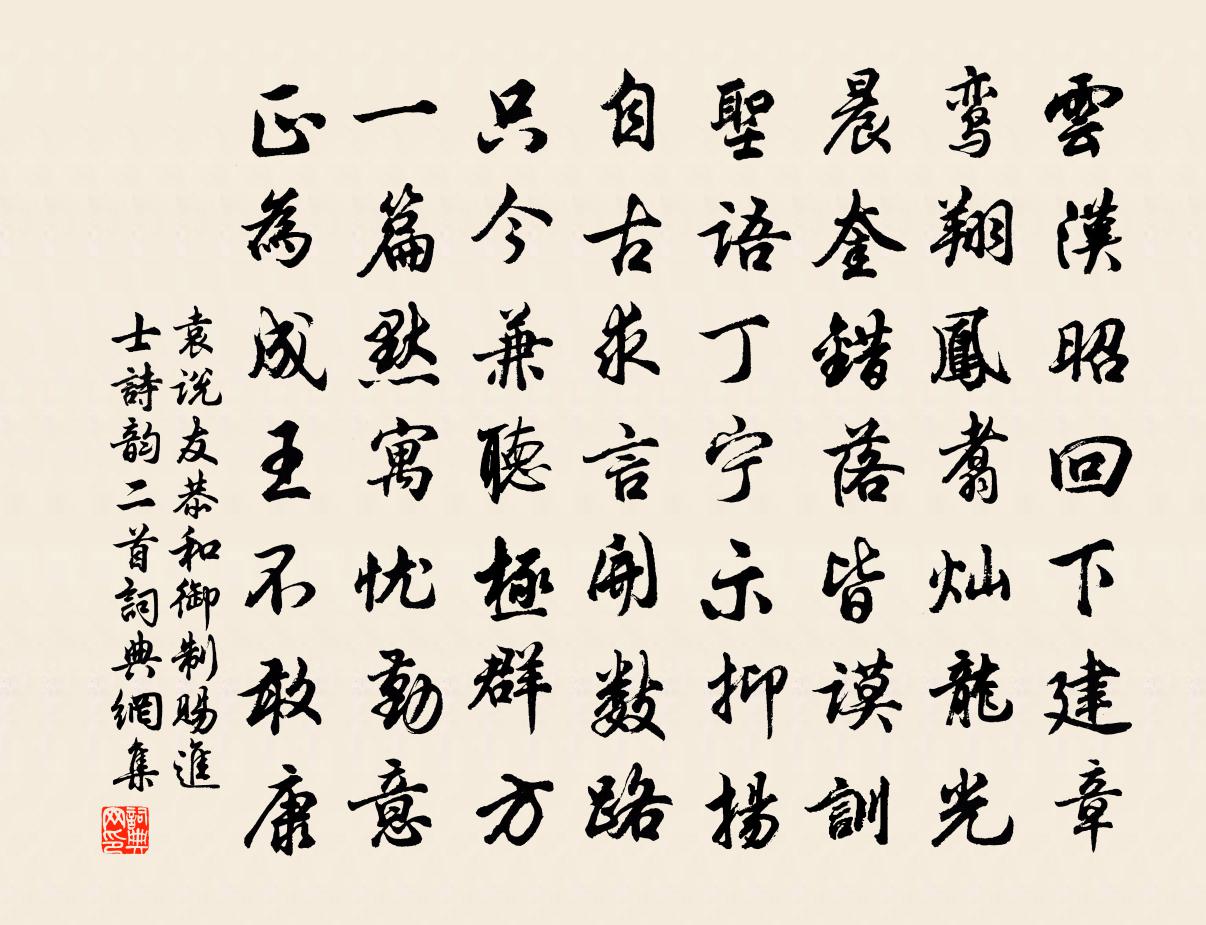 雲漢昭回下建章
鸾翔鳳翥灿龍光
晨奎錯落皆謨訓
聖語丁宁示抑揚
自古求言開数路
只今兼聽極群方
一篇默寓忧勤意
正為成王不敢康
袁说友恭和御制賜進
士詩韵二首詞典網集
詞典
网印